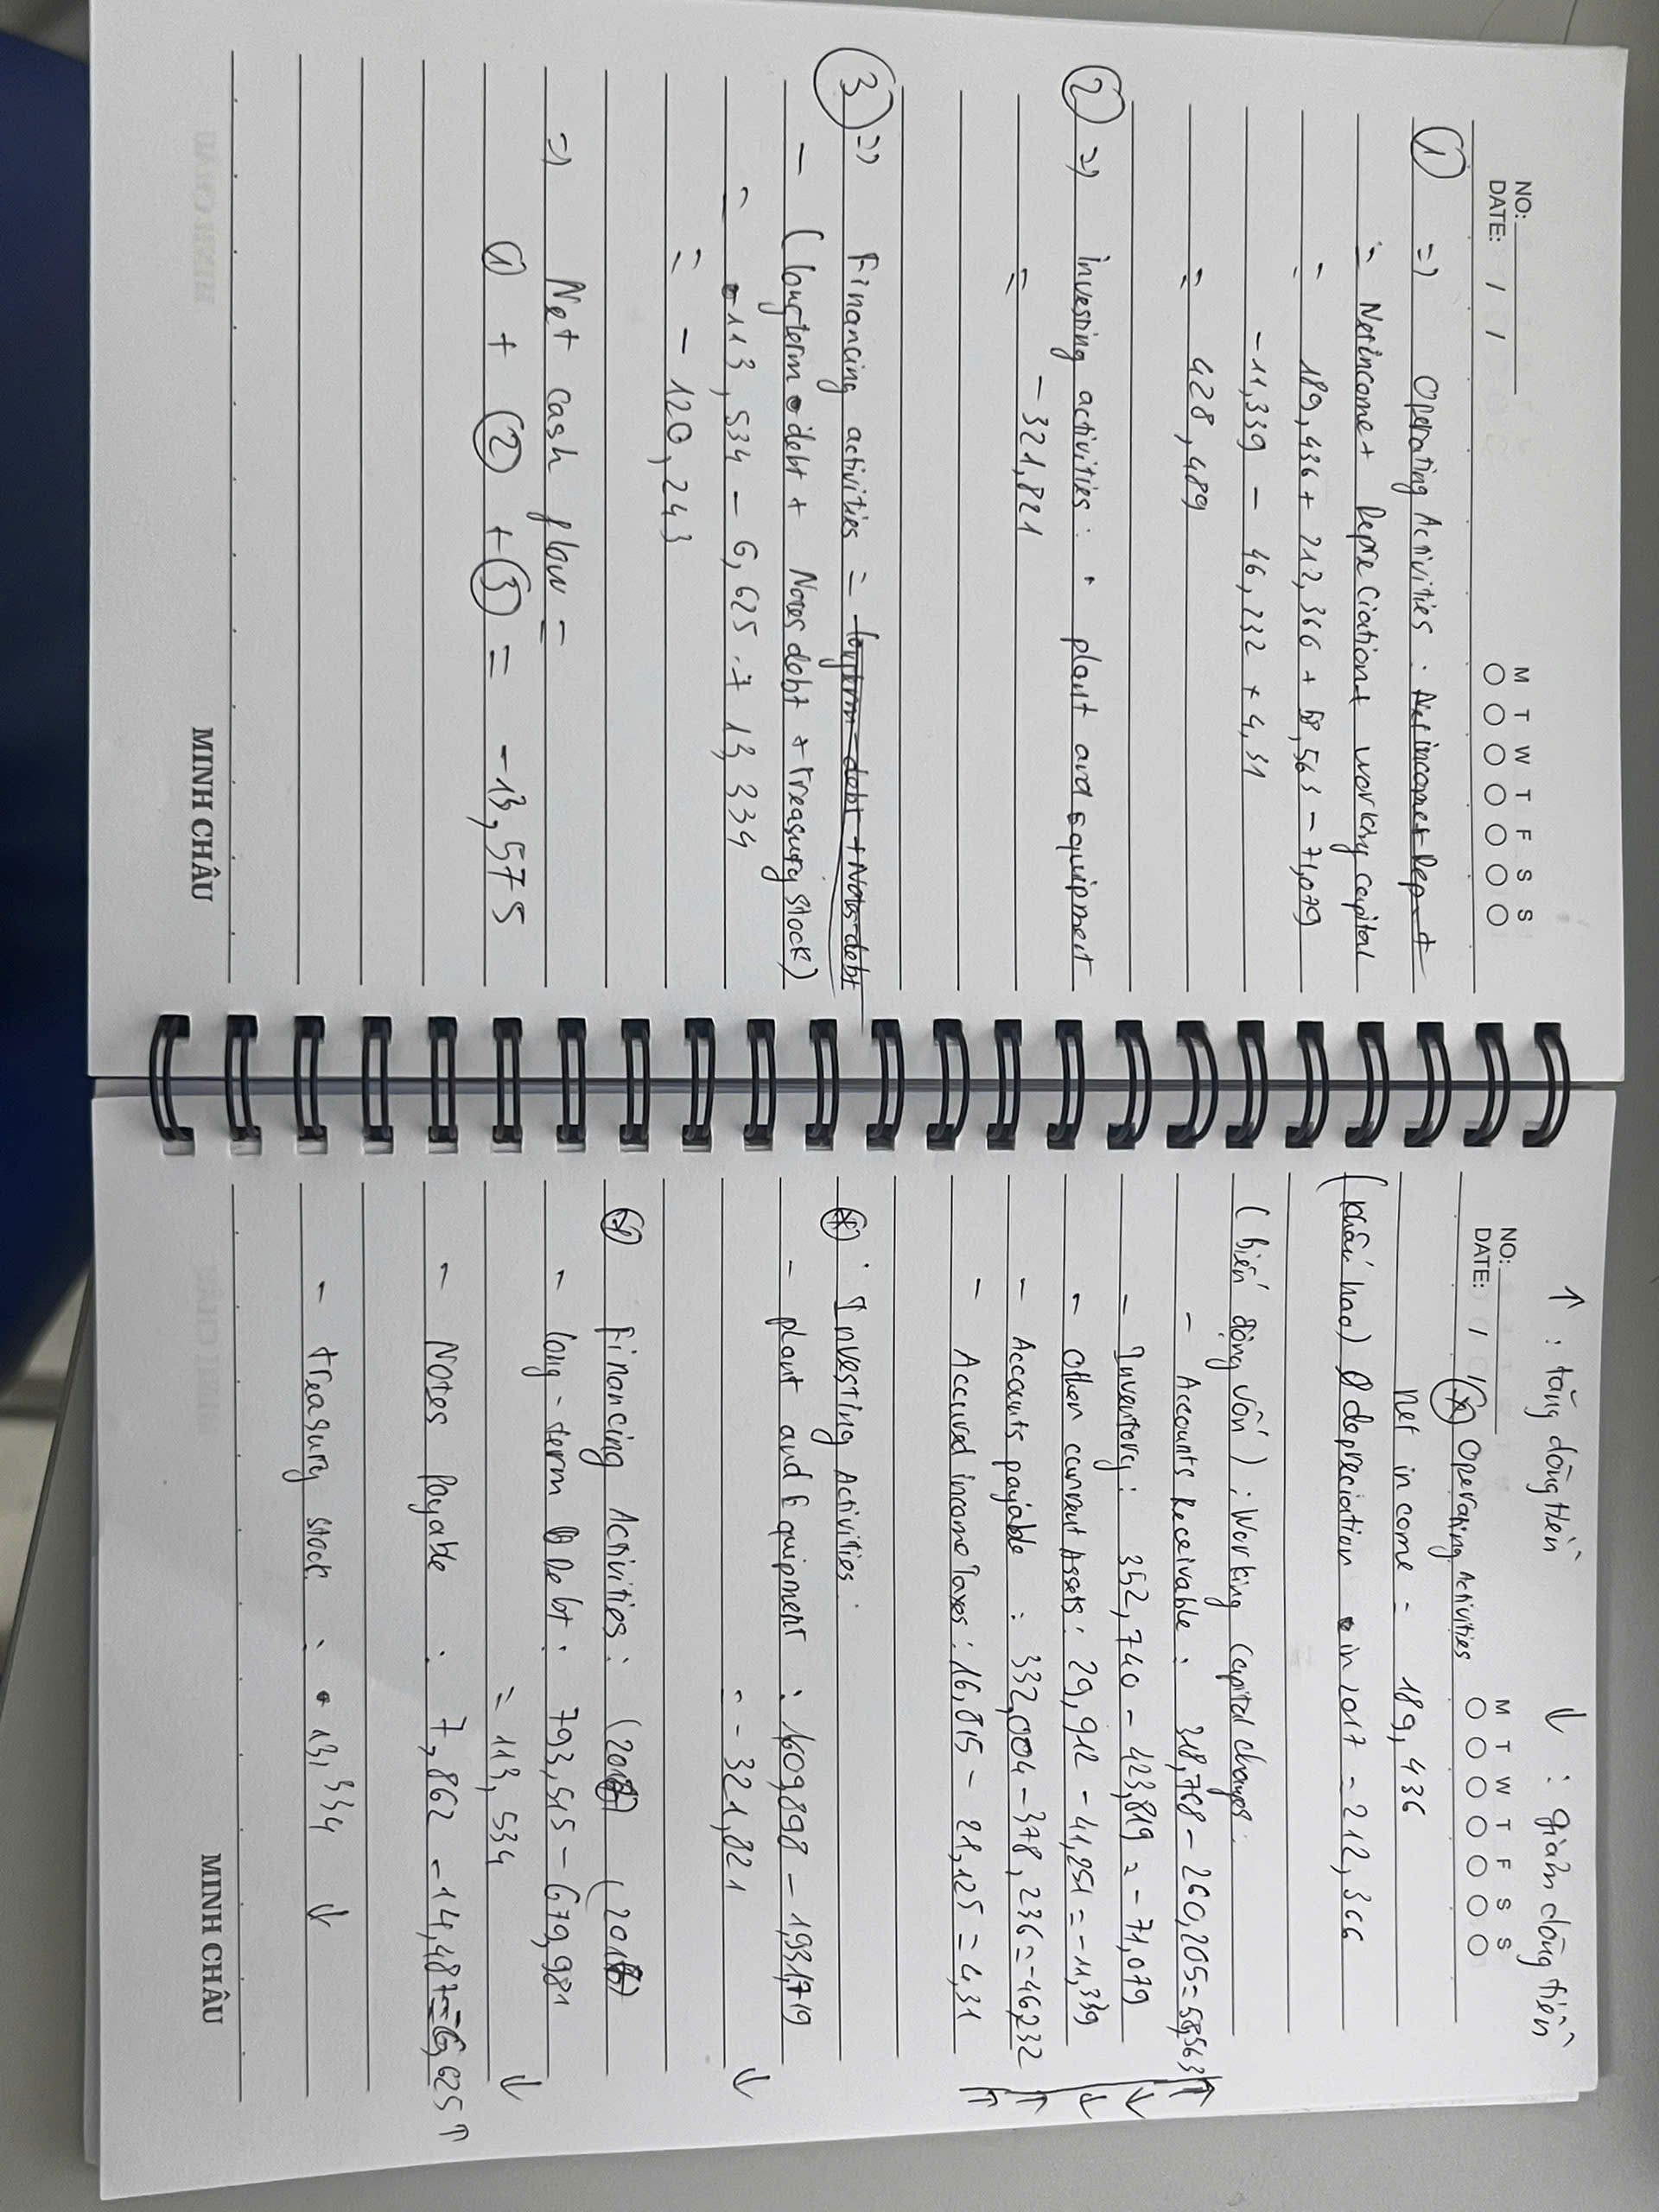 NO:
DATE: / /
M T W T F S S
① => Operating Activities : Net income + Dep +
= Net income + Depreciation + working capital
= 189,436 + 212,366 + 58,563 - 71,079
-11,339 - 46,232 + 4,31
= 428,489
② => investing activities : plant and Equipment
= -321,821
③ => Financing activities = long term debt + Notes debt
- (long term debt + Notes debt + treasury stock)
= -113,534 - 6,625 + 13,334
= -120,243
=> Net cash flow =
① + ② + ③ = -13,575
MINH CHÂU
↑ : tăng dòng tiền ↓ : giảm dòng tiền
NO:
DATE: / /
M T W T F S S
Operating Activities
net income = 189,436
(khấu hao) depreciation in 2017 = 212,366
(biến động vốn) : Working Capital changes :
- Accounts Receivable : 318,768 - 260,205 = 58,563 ↑
- Inventory : 352,740 - 423,819 = -71,079 ↓
- Other current Assets : 29,912 - 41,251 = -11,339 ↓
- Accounts payable : 332,004 - 378,236 = -46,232 ↑
- Accured income Taxes : 16,815 - 21,125 = 4,31 ↑
Investing Activities :
- plant and Equipment : 1,609,898 - 1,931,719
= -321,821 ↓
Financing Activities :
- long-term Debt : 793,515 - 679,981
= 113,534 ↓
- Notes Payable : 7,862 - 14,487 = 6,625 ↑
- treasury stock : 13,334 ↓
MINH CHÂU